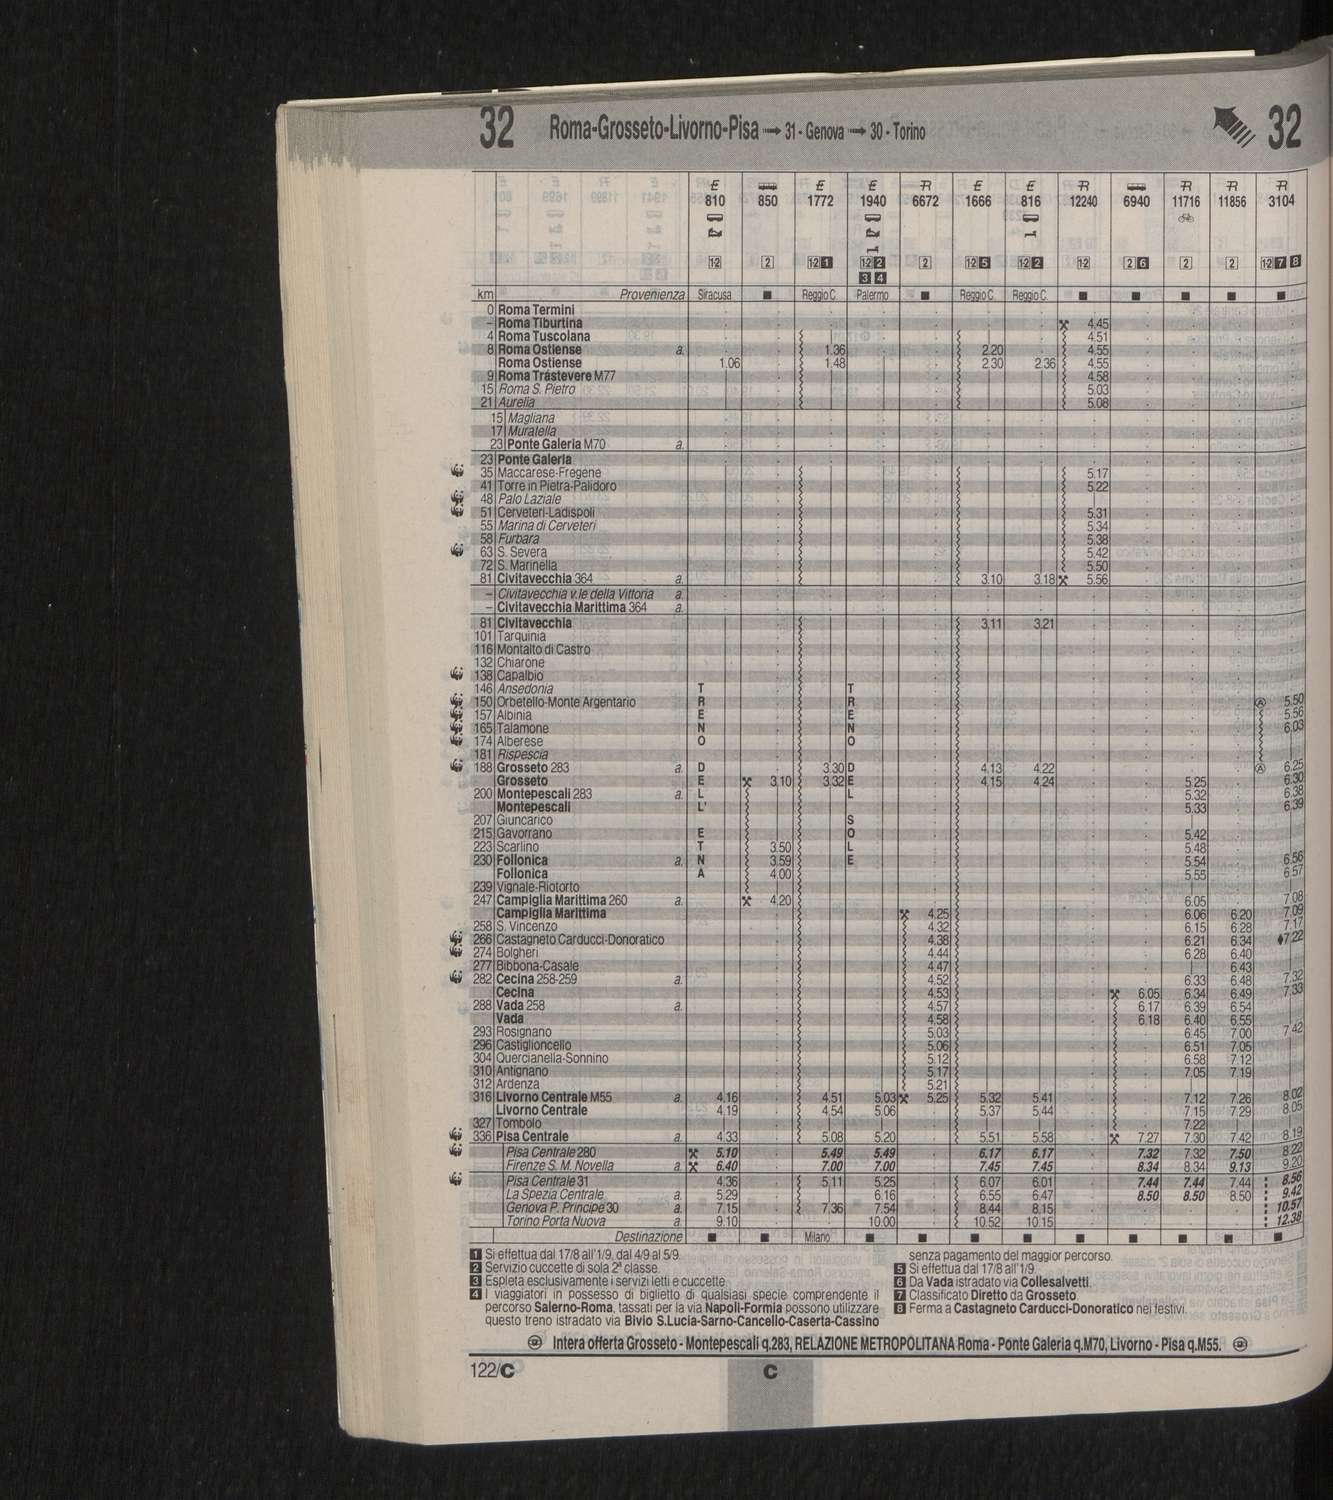 32 Roma-Grosseto-Livorno-Pisa 31 - Genova 30 - Torino 32
E E E R E E R R R R
810 850 1772 1940 6672 1666 816 12240 6940 11716 11856 3104
12 2 12 1 12 2 2 12 5 12 2 12 2 6 2 2 12 7 8
3 4
km Provenienza Siracusa ■ Reggio C. Palermo ■ Reggio C. Reggio C. ■ ■ ■ ■ ■
0 Roma Termini
– Roma Tiburtina 4.45
4 Roma Tuscolana 4.51
8 Roma Ostiense a. 1.36 2.20 4.55
Roma Ostiense 1.06 1.48 2.30 2.36 4.55
9 Roma Trastevere M77 4.58
15 Roma S. Pietro 5.03
21 Aurelia 5.08
15 Magliana
17 Muratella
23 Ponte Galeria M70 a.
23 Ponte Galeria
35 Maccarese-Fregene 5.17
41 Torre in Pietra-Palidoro 5.22
48 Palo Laziale
51 Cerveteri-Ladispoli 5.31
55 Marina di Cerveteri 5.34
58 Furbara 5.38
63 S. Severa 5.42
72 S. Marinella 5.50
81 Civitavecchia 364 a. 3.10 3.18 5.56
– Civitavecchia v.le della Vittoria a.
– Civitavecchia Marittima 364 a.
81 Civitavecchia 3.11 3.21
101 Tarquinia
116 Montalto di Castro
132 Chiarone
138 Capalbio
146 Ansedonia T T
150 Orbetello-Monte Argentario R R A 5.50
157 Albinia E E 5.56
165 Talamone N N 6.03
174 Alberese O O
181 Rispescia
188 Grosseto 283 a. D 3.30 D 4.13 4.22 A 6.25
Grosseto E 3.10 3.32 E 4.15 4.24 5.25 6.30
200 Montepescali 283 a. L L 5.32 6.38
Montepescali L' 5.33 6.39
207 Giuncarico S
215 Gavorrano E O 5.42
223 Scarlino T 3.50 L 5.48
230 Follonica a. N 3.59 E 5.54 6.56
Follonica A 4.00 5.55 6.57
239 Vignale-Riotorto
247 Campiglia Marittima 260 a. 4.20 6.05 7.08
Campiglia Marittima 4.25 6.06 6.20 7.09
258 S. Vincenzo 4.32 6.15 6.28 7.17
266 Castagneto Carducci-Donoratico 4.38 6.21 6.34 ♦7.22
274 Bolgheri 4.44 6.28 6.40
277 Bibbona-Casale 4.47 6.43
282 Cecina 258-259 a. 4.52 6.33 6.48 7.32
Cecina 4.53 6.05 6.34 6.49 7.33
288 Vada 258 a. 4.57 6.17 6.39 6.54
Vada 4.58 6.18 6.40 6.55
293 Rosignano 5.03 6.45 7.00 7.42
296 Castiglioncello 5.06 6.51 7.05
304 Quercianella-Sonnino 5.12 6.58 7.12
310 Antignano 5.17 7.05 7.19
312 Ardenza 5.21
316 Livorno Centrale M55 a. 4.16 4.51 5.03 5.25 5.32 5.41 7.12 7.26 8.02
Livorno Centrale 4.19 4.54 5.06 5.37 5.44 7.15 7.29 8.05
327 Tombolo 7.22
336 Pisa Centrale a. 4.33 5.08 5.20 5.51 5.58 7.27 7.30 7.42 8.19
Pisa Centrale 280 5.10 5.49 5.49 6.17 6.17 7.32 7.32 7.50 8.22
Firenze S. M. Novella a. 6.40 7.00 7.00 7.45 7.45 8.34 8.34 9.13 9.20
Pisa Centrale 31 4.36 5.11 5.25 6.07 6.01 7.44 7.44 7.44 8.56
La Spezia Centrale a. 5.29 6.16 6.55 6.47 8.50 8.50 8.50 9.42
Genova P. Principe 30 a. 7.15 7.36 7.54 8.44 8.15 10.57
Torino Porta Nuova a. 9.10 10.00 10.52 10.15 12.38
Destinazione ■ ■ Milano ■ ■ ■ ■ ■ ■ ■ ■ ■
1 Si effettua dal 17/8 all'1/9, dal 4/9 al 5/9.
2 Servizio cuccette di sola 2ª classe.
3 Espleta esclusivamente i servizi letti e cuccette
4 I viaggiatori in possesso di biglietto di qualsiasi specie comprendente il
percorso Salerno-Roma, tassati per la via Napoli-Formia possono utilizzare
questo treno istradato via Bivio S.Lucia-Sarno-Cancello-Caserta-Cassino
senza pagamento del maggior percorso.
5 Si effettua dal 17/8 all'1/9.
6 Da Vada istradato via Collesalvetti.
7 Classificato Diretto da Grosseto.
8 Ferma a Castagneto Carducci-Donoratico nei festivi.
Intera offerta Grosseto - Montepescali q.283, RELAZIONE METROPOLITANA Roma - Ponte Galeria q.M70, Livorno - Pisa q.M55.
122/C C